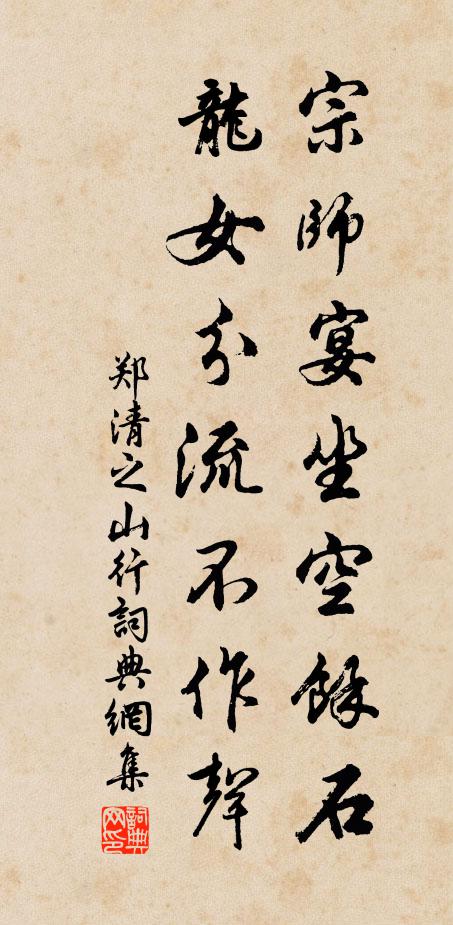 宗師宴坐空餘石
龍女分流不作聲
郑清之山行詞典網集
詞典网印